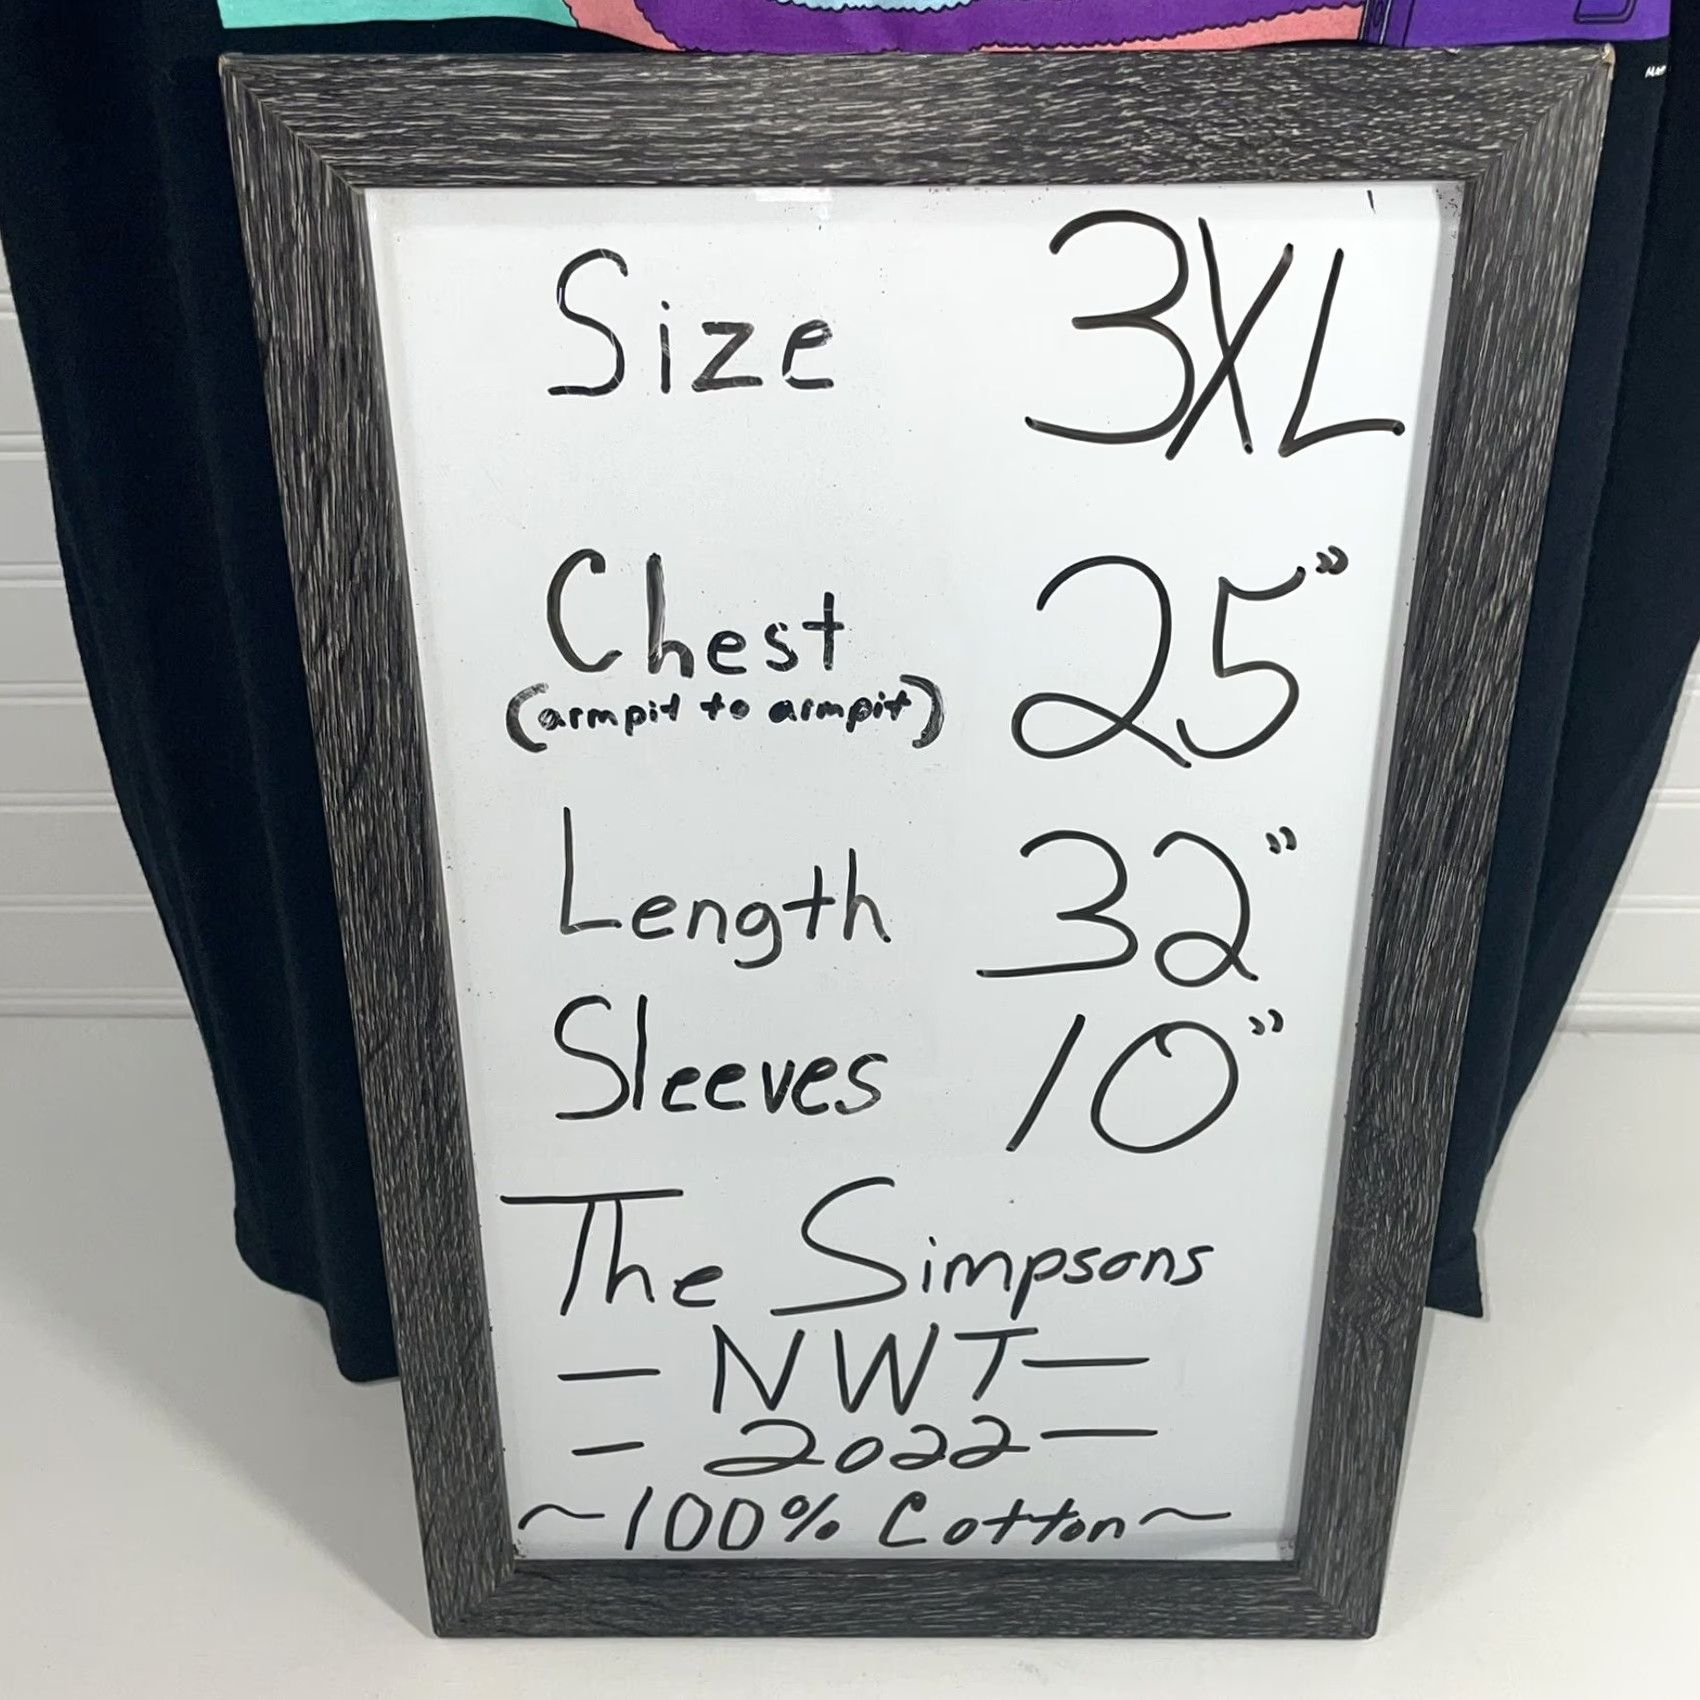 Size 3XL
Chest 25"
(armpit to armpit)
Length 32"
Sleeves 10"
The Simpsons
— NWT —
- 2022 —
~100% Cotton~